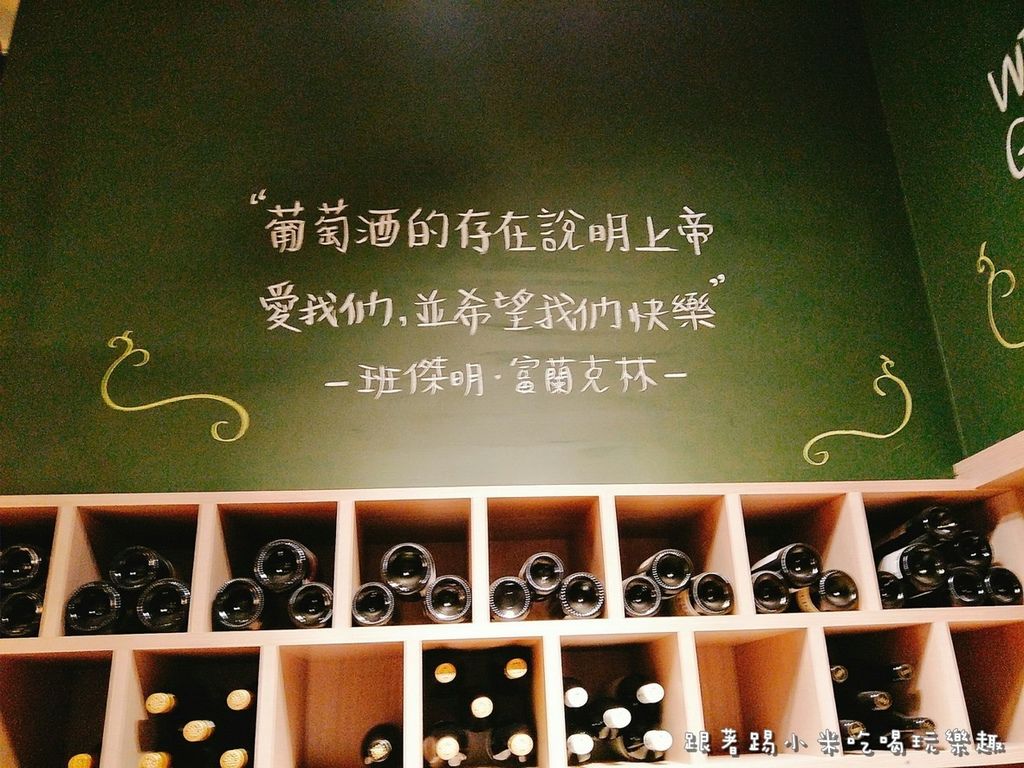 “葡萄酒的存在說明上帝
愛我們,並希望我們快樂”
－班傑明·富蘭克林－
跟著踢小米吃喝玩樂趣